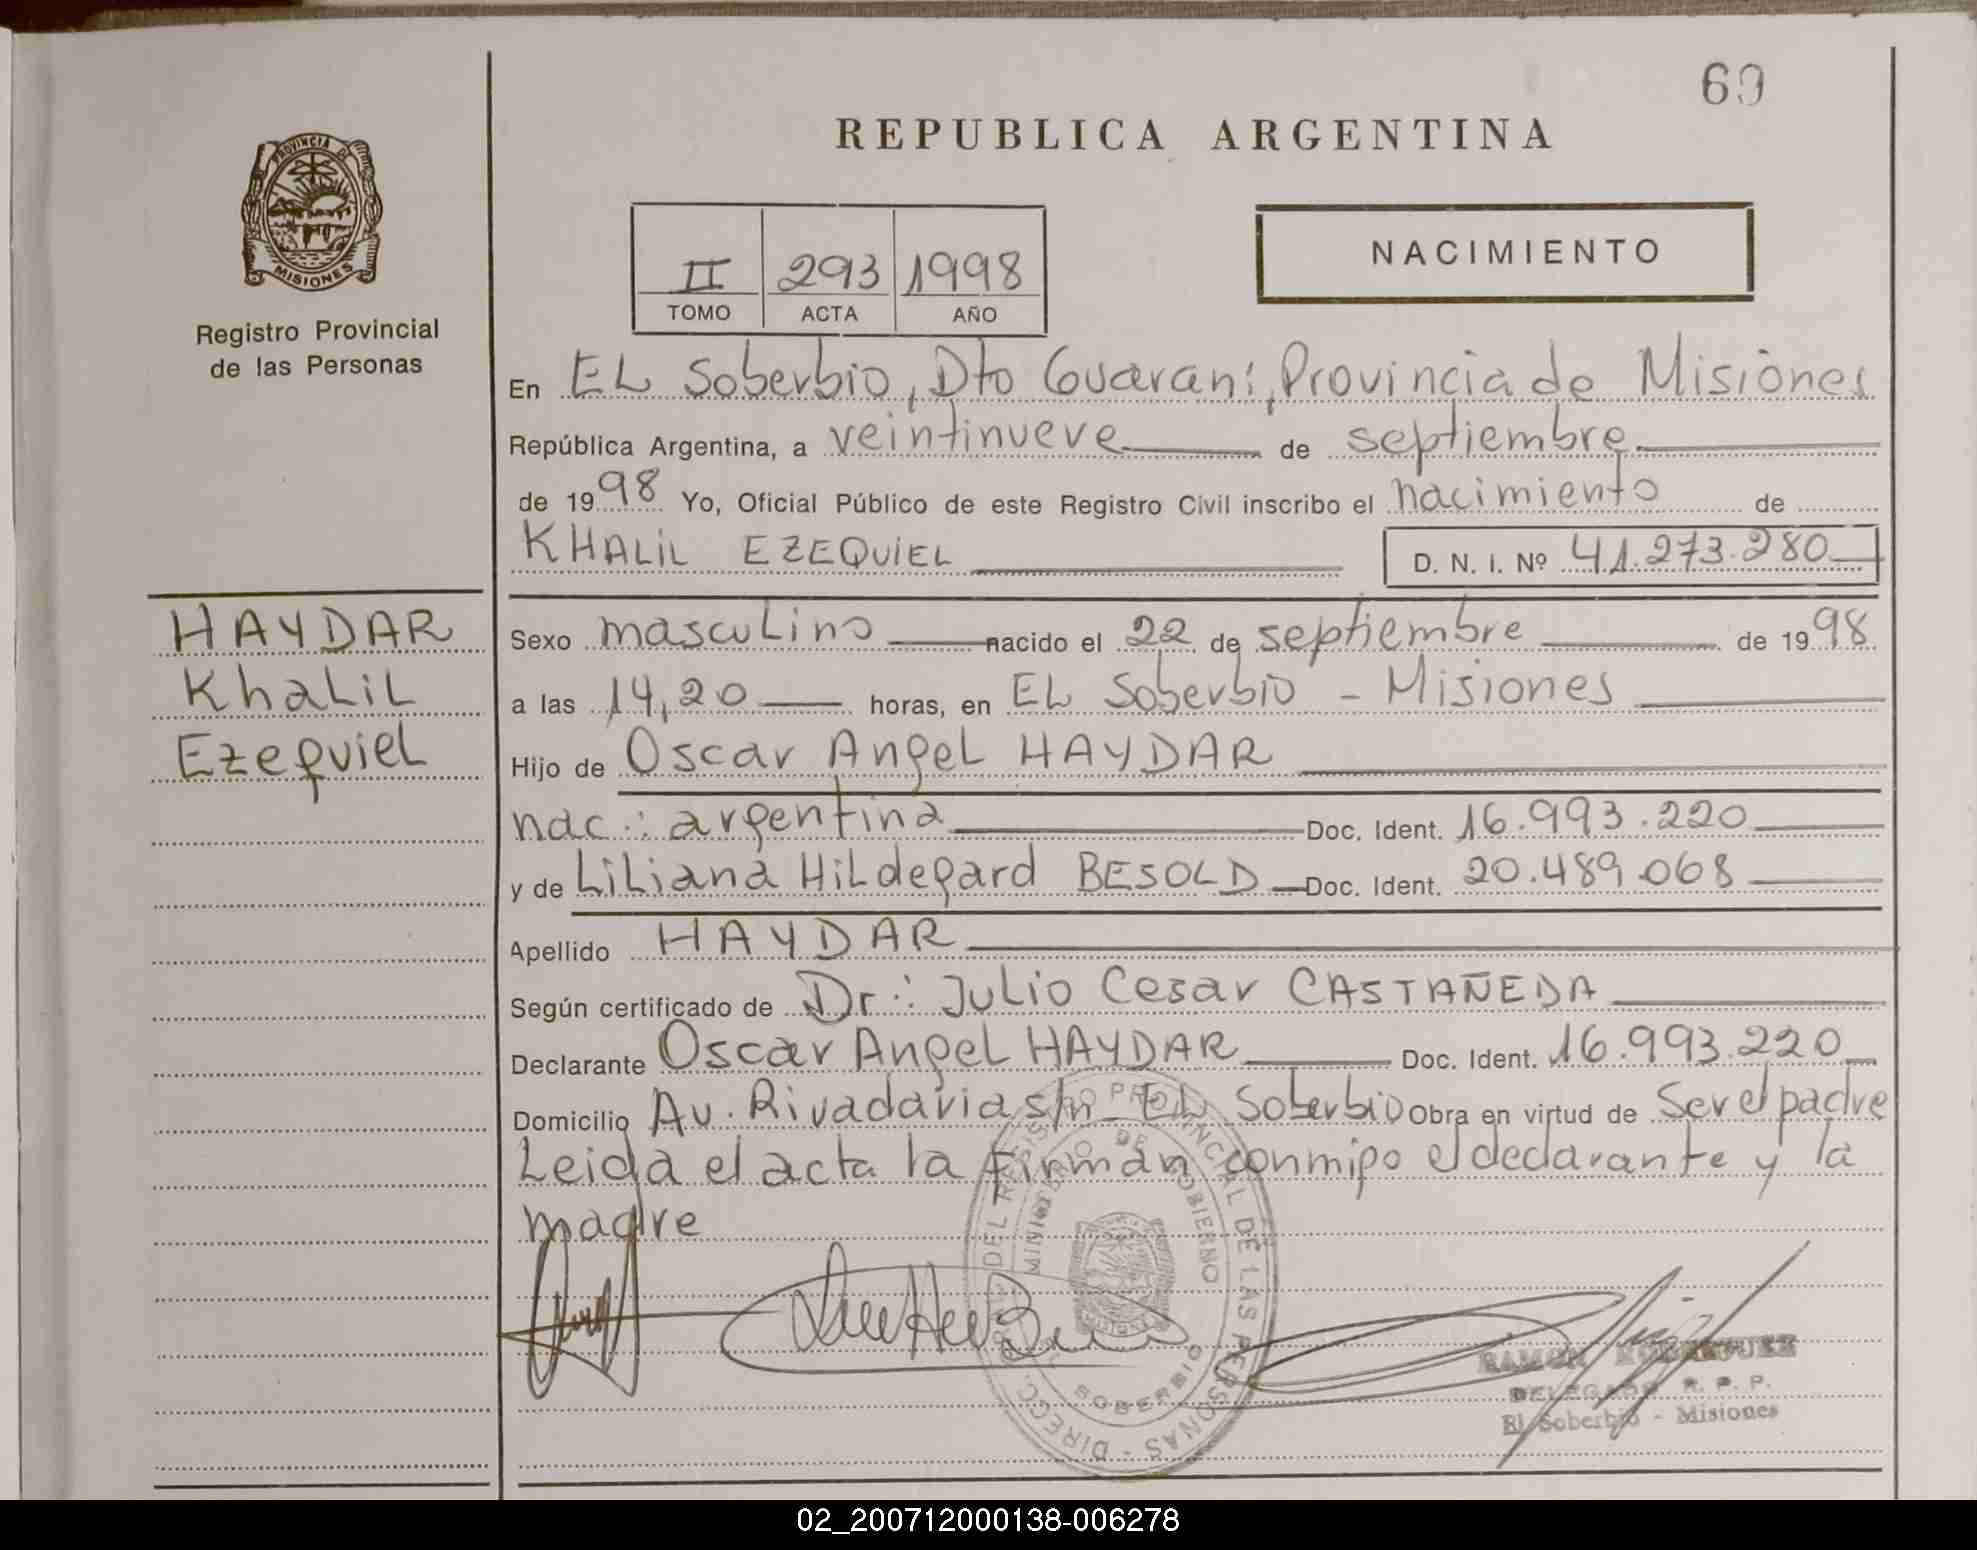 69
REPUBLICA ARGENTINA
PROVINCIA DE
MISIONES
Registro Provincial
de las Personas
II 293 1998
TOMO ACTA AÑO
NACIMIENTO
En EL Soberbio, Dto Guaraní, Provincia de Misiones
República Argentina, a veintinueve de septiembre
de 1998 Yo, Oficial Público de este Registro Civil inscribo el nacimiento de
KHALIL EZEQUIEL D. N. I. Nº 41.273.280
HAYDAR
Khalil
Ezequiel
Sexo masculino nacido el 22 de septiembre de 1998
a las 14,20 horas, en EL Soberbio - Misiones
Hijo de Oscar Angel HAYDAR
nac.: argentina Doc. Ident. 16.993.220
y de Liliana Hildegard BESOLD Doc. Ident. 20.489.068
Apellido HAYDAR
Según certificado de Dr.: Julio Cesar CASTAÑEDA
Declarante Oscar Angel HAYDAR Doc. Ident. 16.993.220
Domicilio Av. Rivadavia s/n - EL Soberbio Obra en virtud de Ser el padre
Leida el acta la firman conmigo el declarante y la
madre
DIRECC. DEL REGISTRO PROVINCIAL DE LAS PERSONAS
MINISTERIO DE GOBIERNO
SOBERBIO
RAMON RODRIGUEZ
DELEGADO R. P. P.
El Soberbio - Misiones
02_200712000138-006278